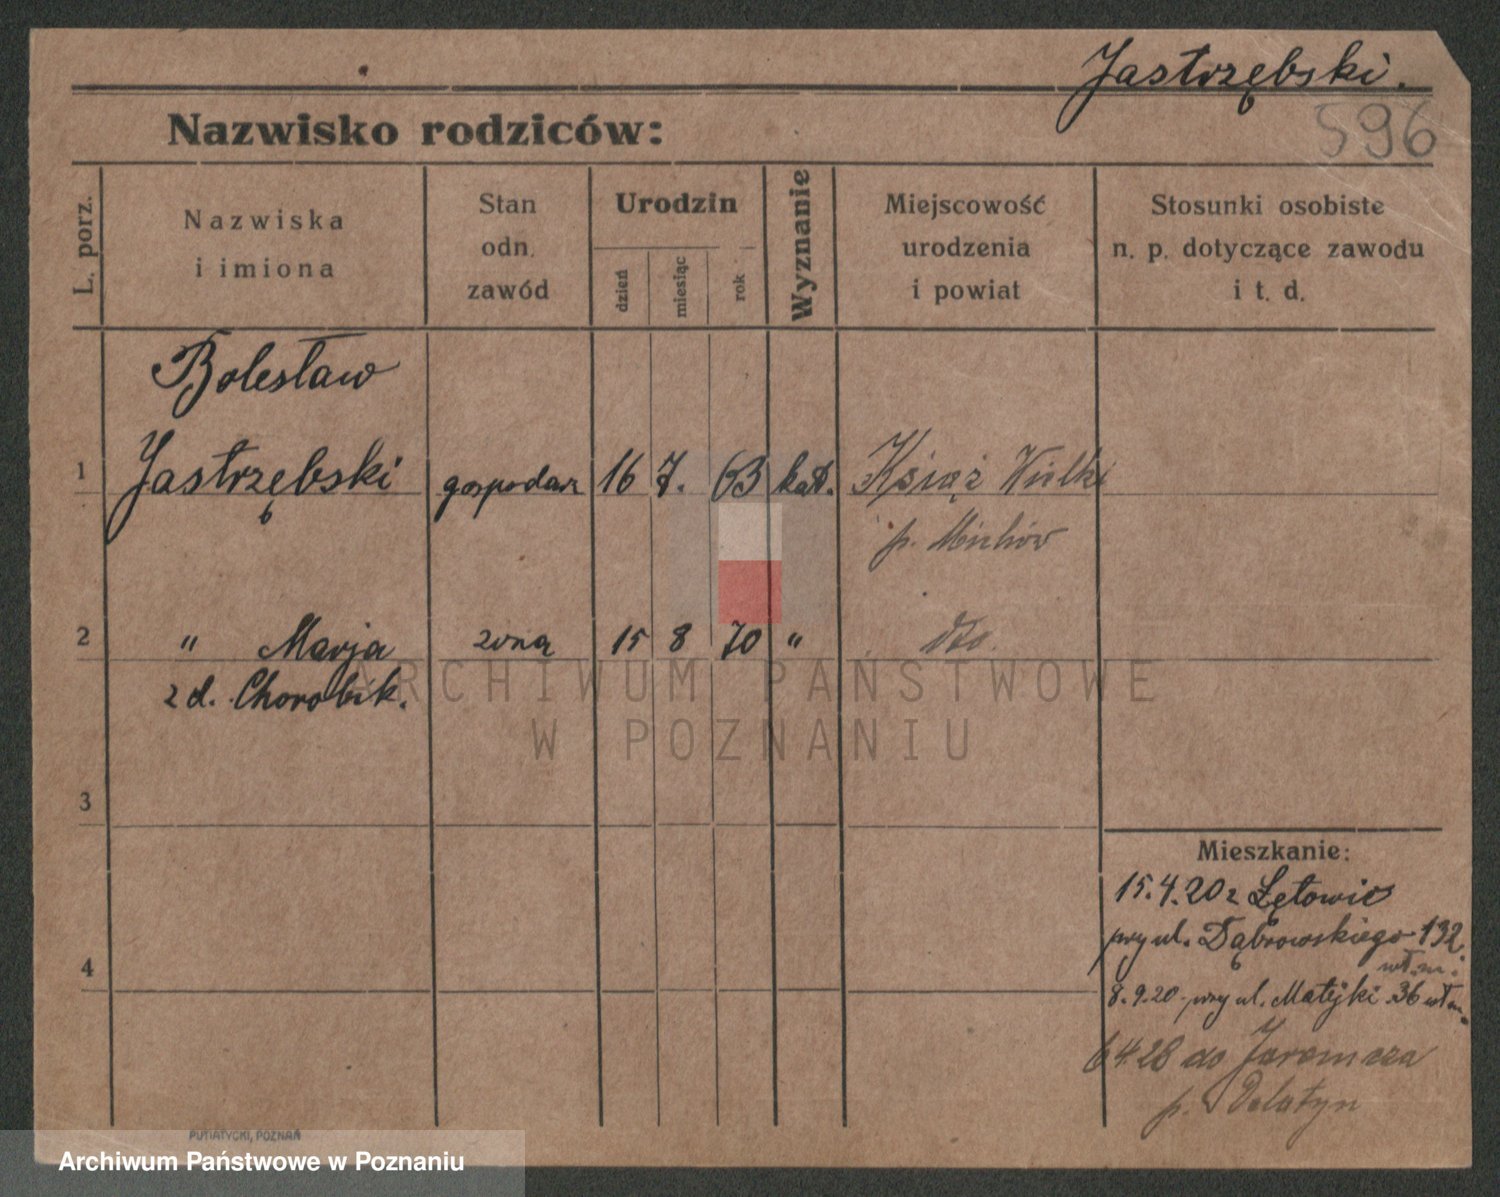 Jastrzębski.
596
Nazwisko rodziców:
L. porz.
Nazwiska
i imiona
Stan
odn.
zawód
Urodzin
dzień
miesiąc
rok
Wyznanie
Miejscowość
urodzenia
i powiat
Stosunki osobiste
n. p. dotyczące zawodu
i t. d.
Bolesław
1 Jastrzębski gospodarz 16 7. 63 kat. Książ Wielki
p. Miechów
2 " Marja żona 15 8 70 " dto.
z d. Chorobik.
ARCHIWUM PAŃSTWOWE
W POZNANIU
3
4
Mieszkanie:
15.4.20 z Łętowic
przy ul. Dąbrowskiego 132
wł. m.
8.9.20 przy ul. Matejki 36 wł m.
6 4 28 do Jaremcza
p. Delatyn
PUTIATYCKI, POZNAŃ
Archiwum Państwowe w Poznaniu